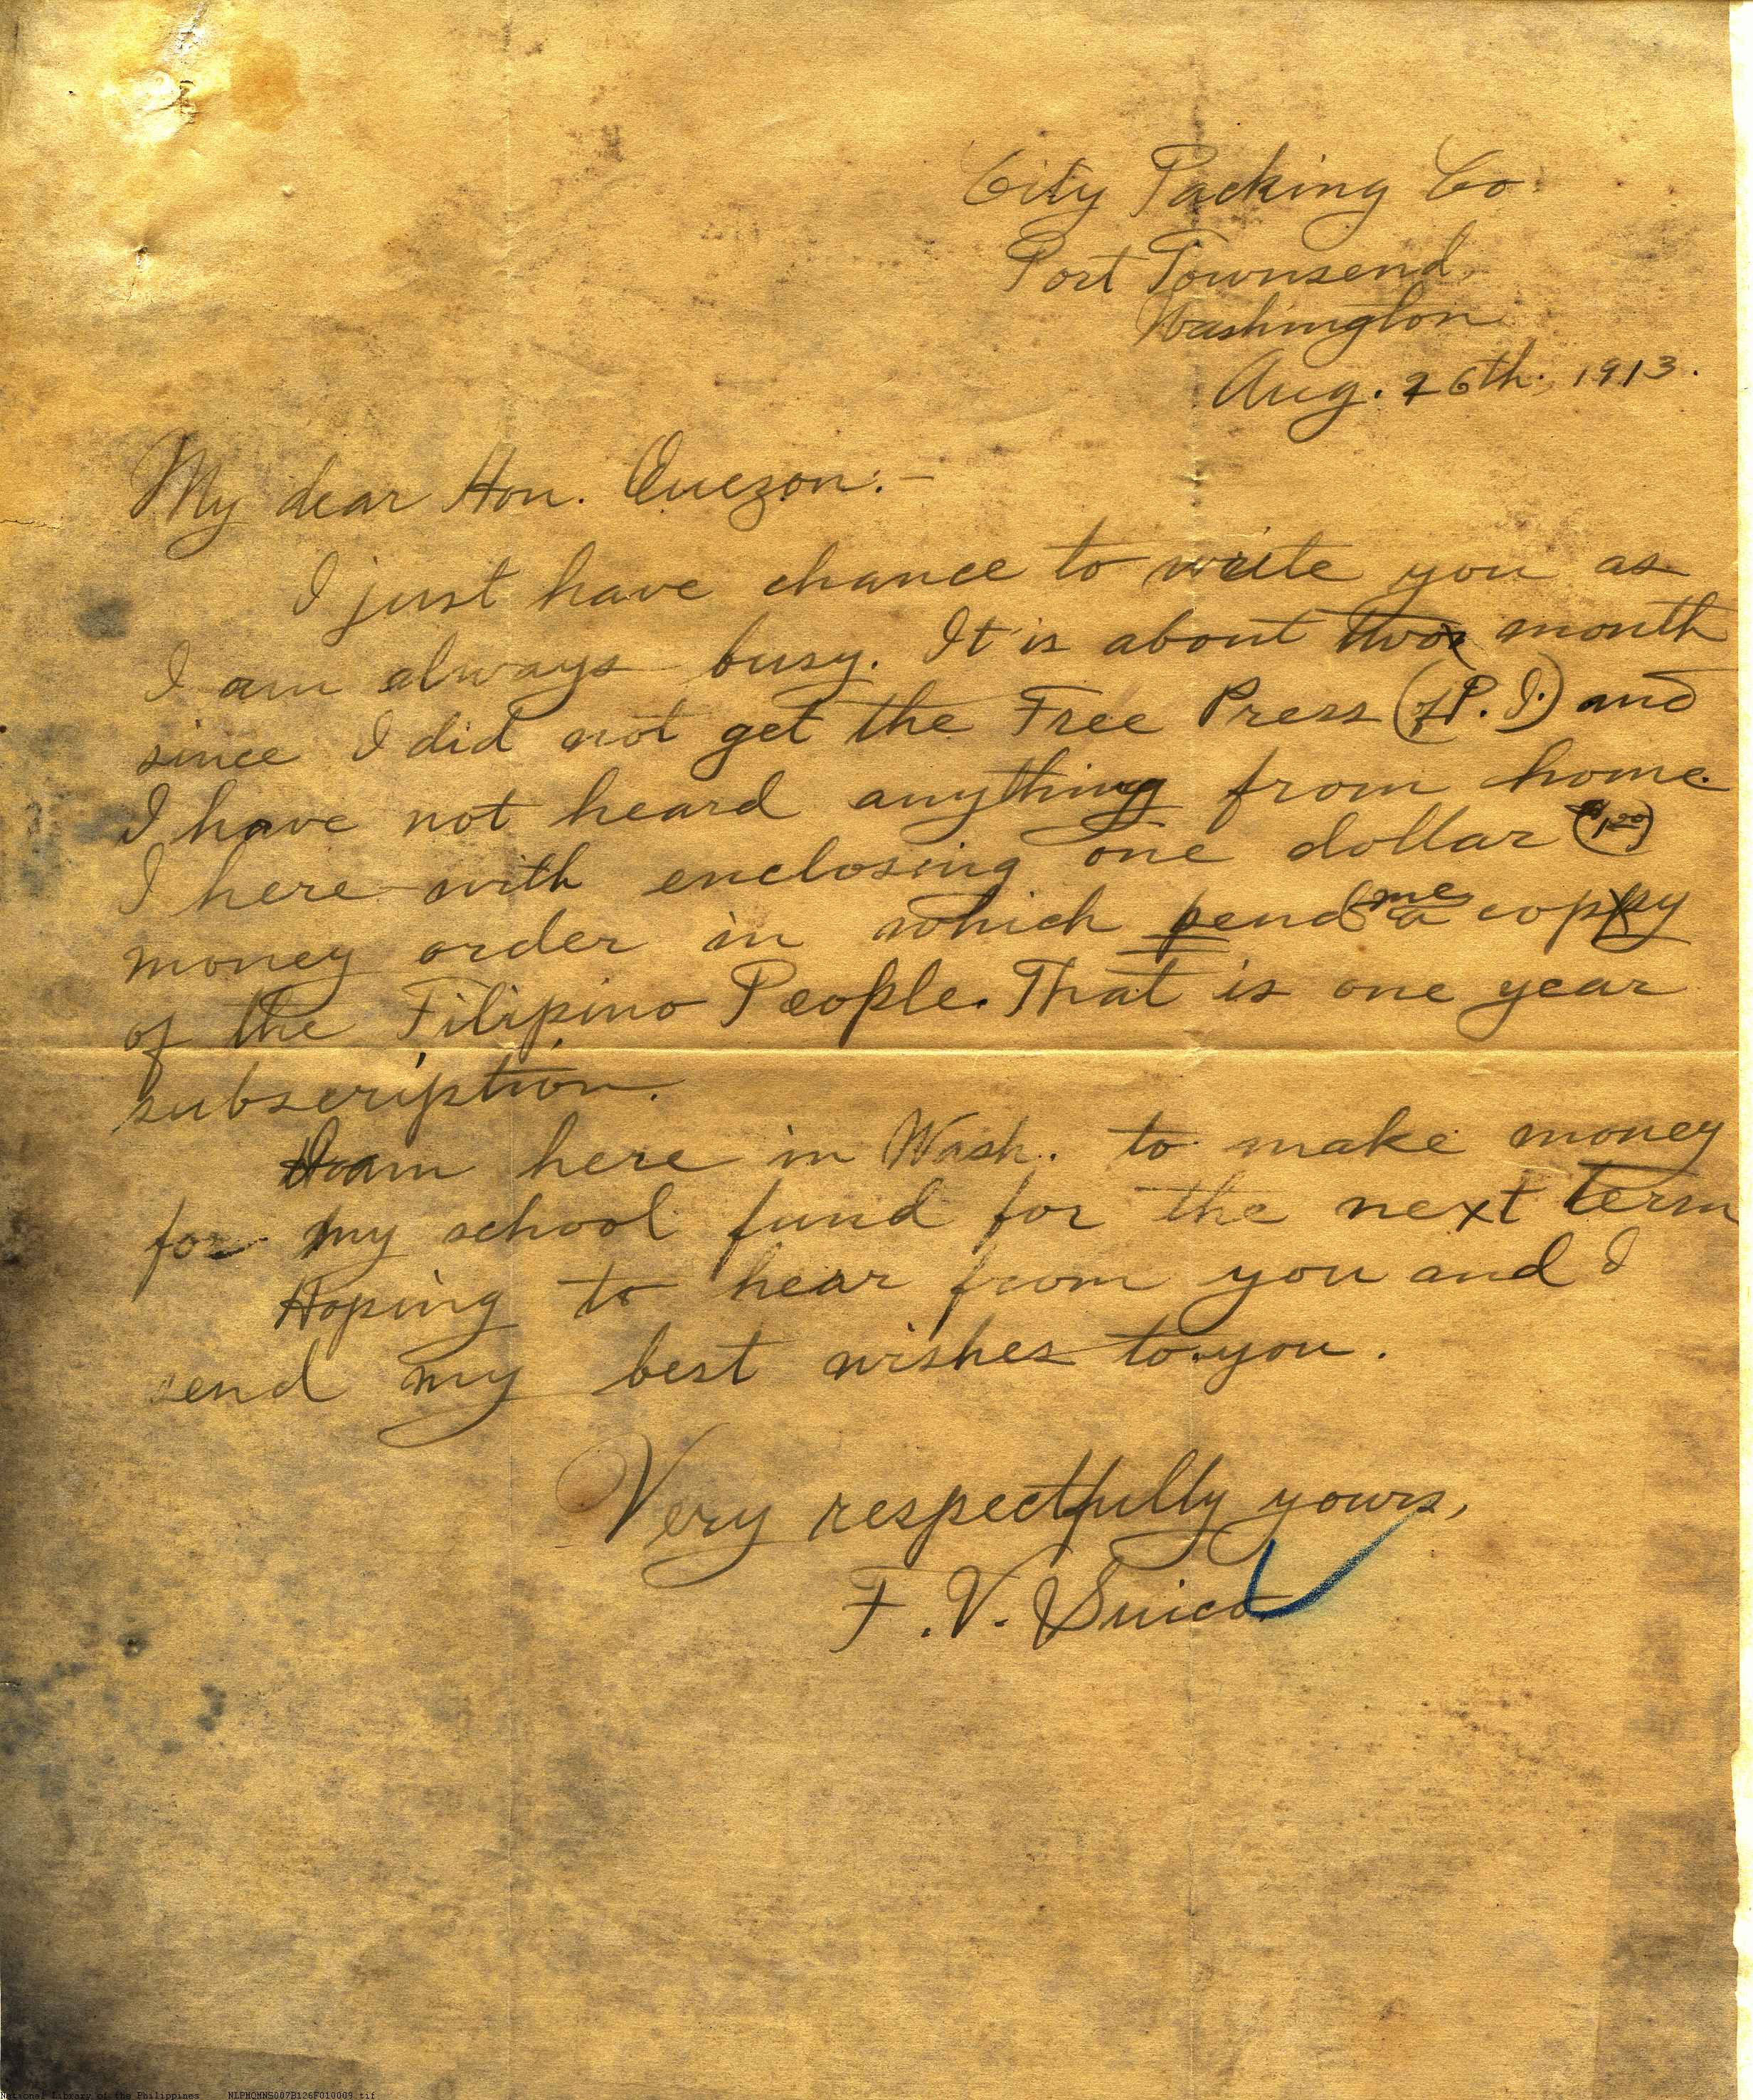 City Packing Co.
Port Townsend
Washington
Aug. 26th, 1913.
My dear Hon. Quezon:-
I just have chance to write you as
I am always busy. It is about two month
since I did not get the Free Press (P. I.) and
I have not heard anything from home.
I here with enclosing one dollar ($1.00)
money order in which send me a copy
of the Filipino People. That is one year
subscription.
I am here in Wash. to make money
for my school fund for the next term
Hoping to hear from you and I
send my best wishes to you.
Very respectfully yours,
F. V. Suico
National Library of the Philippines NLPMQMNS007B126F010009.tif